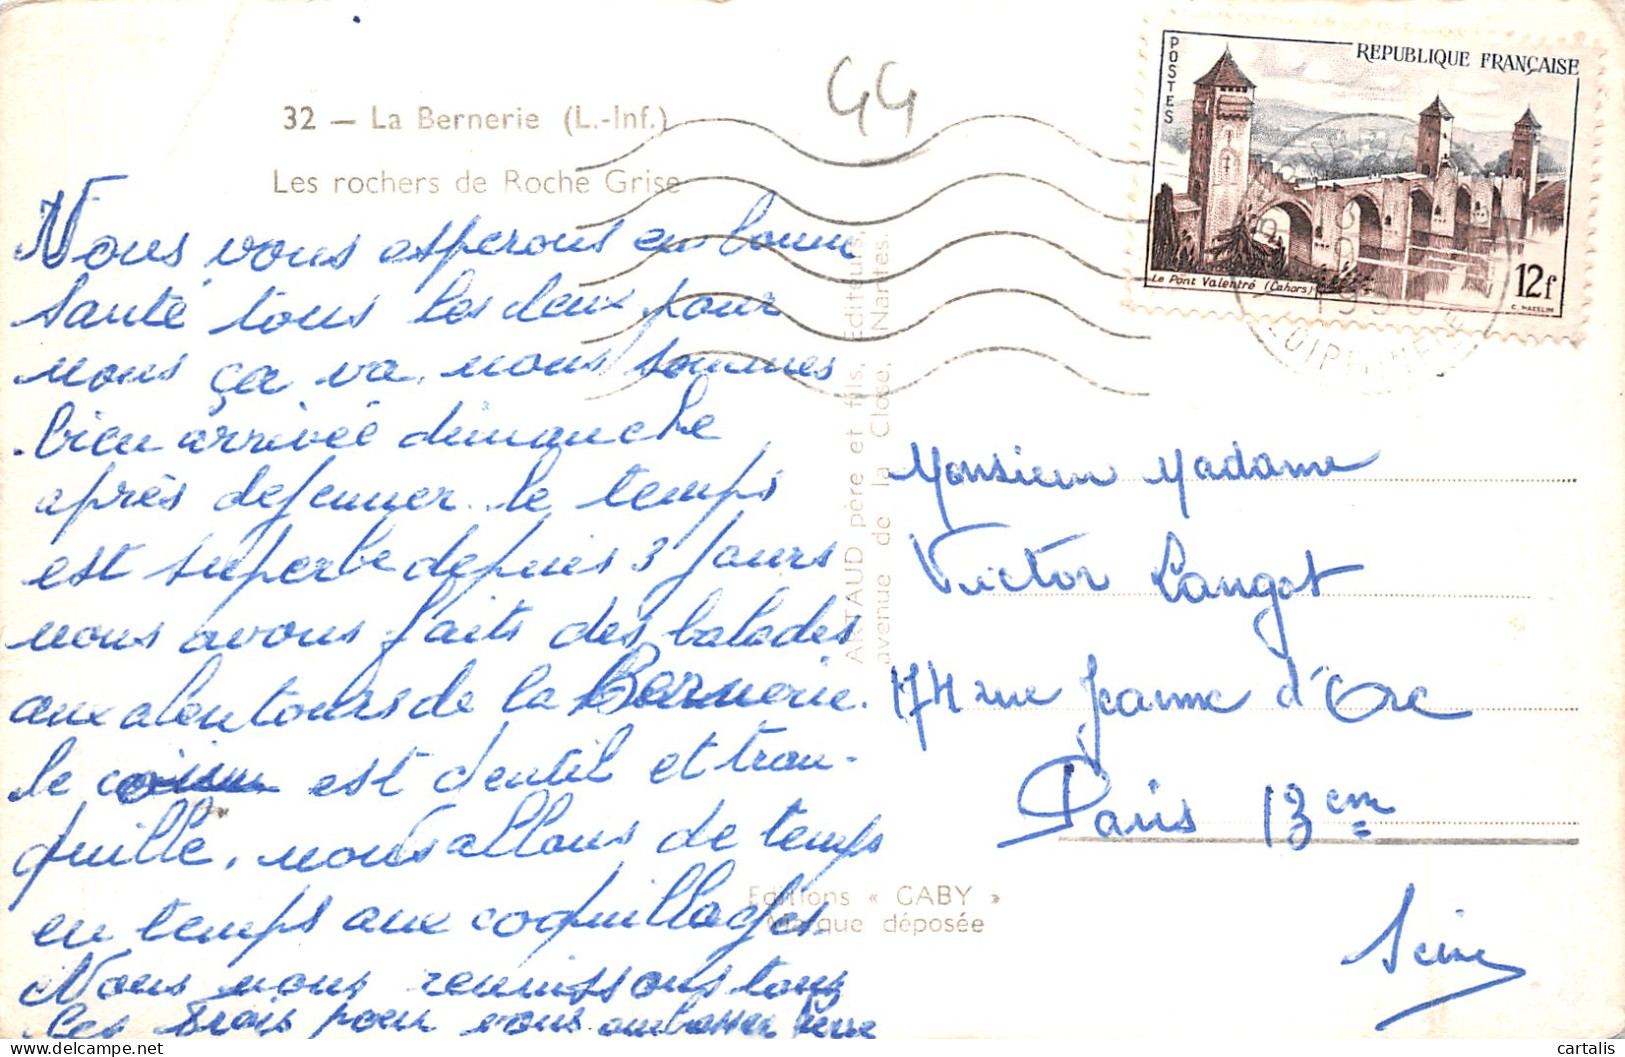 44
32 — La Bernerie (L.-Inf.)
Les rochers de Roche Grise
Nous vous esperons en bonne
santé tous les deux pour
nous ça va, nous sommes
bien arrivée dimanche
après dejeuner. le temps
est superbe depuis 3 jours
nous avons faits des balades
aux alentours de la Bernerie.
le coin est dentil et tran-
quille, nous allons de temps
en temps aux coquillages.
Nous nous reunissons tous
les trois pour vous embrasser
ARTAUD père et fils, Éditeurs,
avenue de la Close, Nantes.
Editions « GABY »
Marque déposée
POSTES
REPUBLIQUE FRANÇAISE
Le Pont Valentré (Cahors)
12f
C. MAZELIN
Monsieur Madame
Victor Langot
174 rue Jeanne d'Arc
Paris 13em
Seine
cartalis